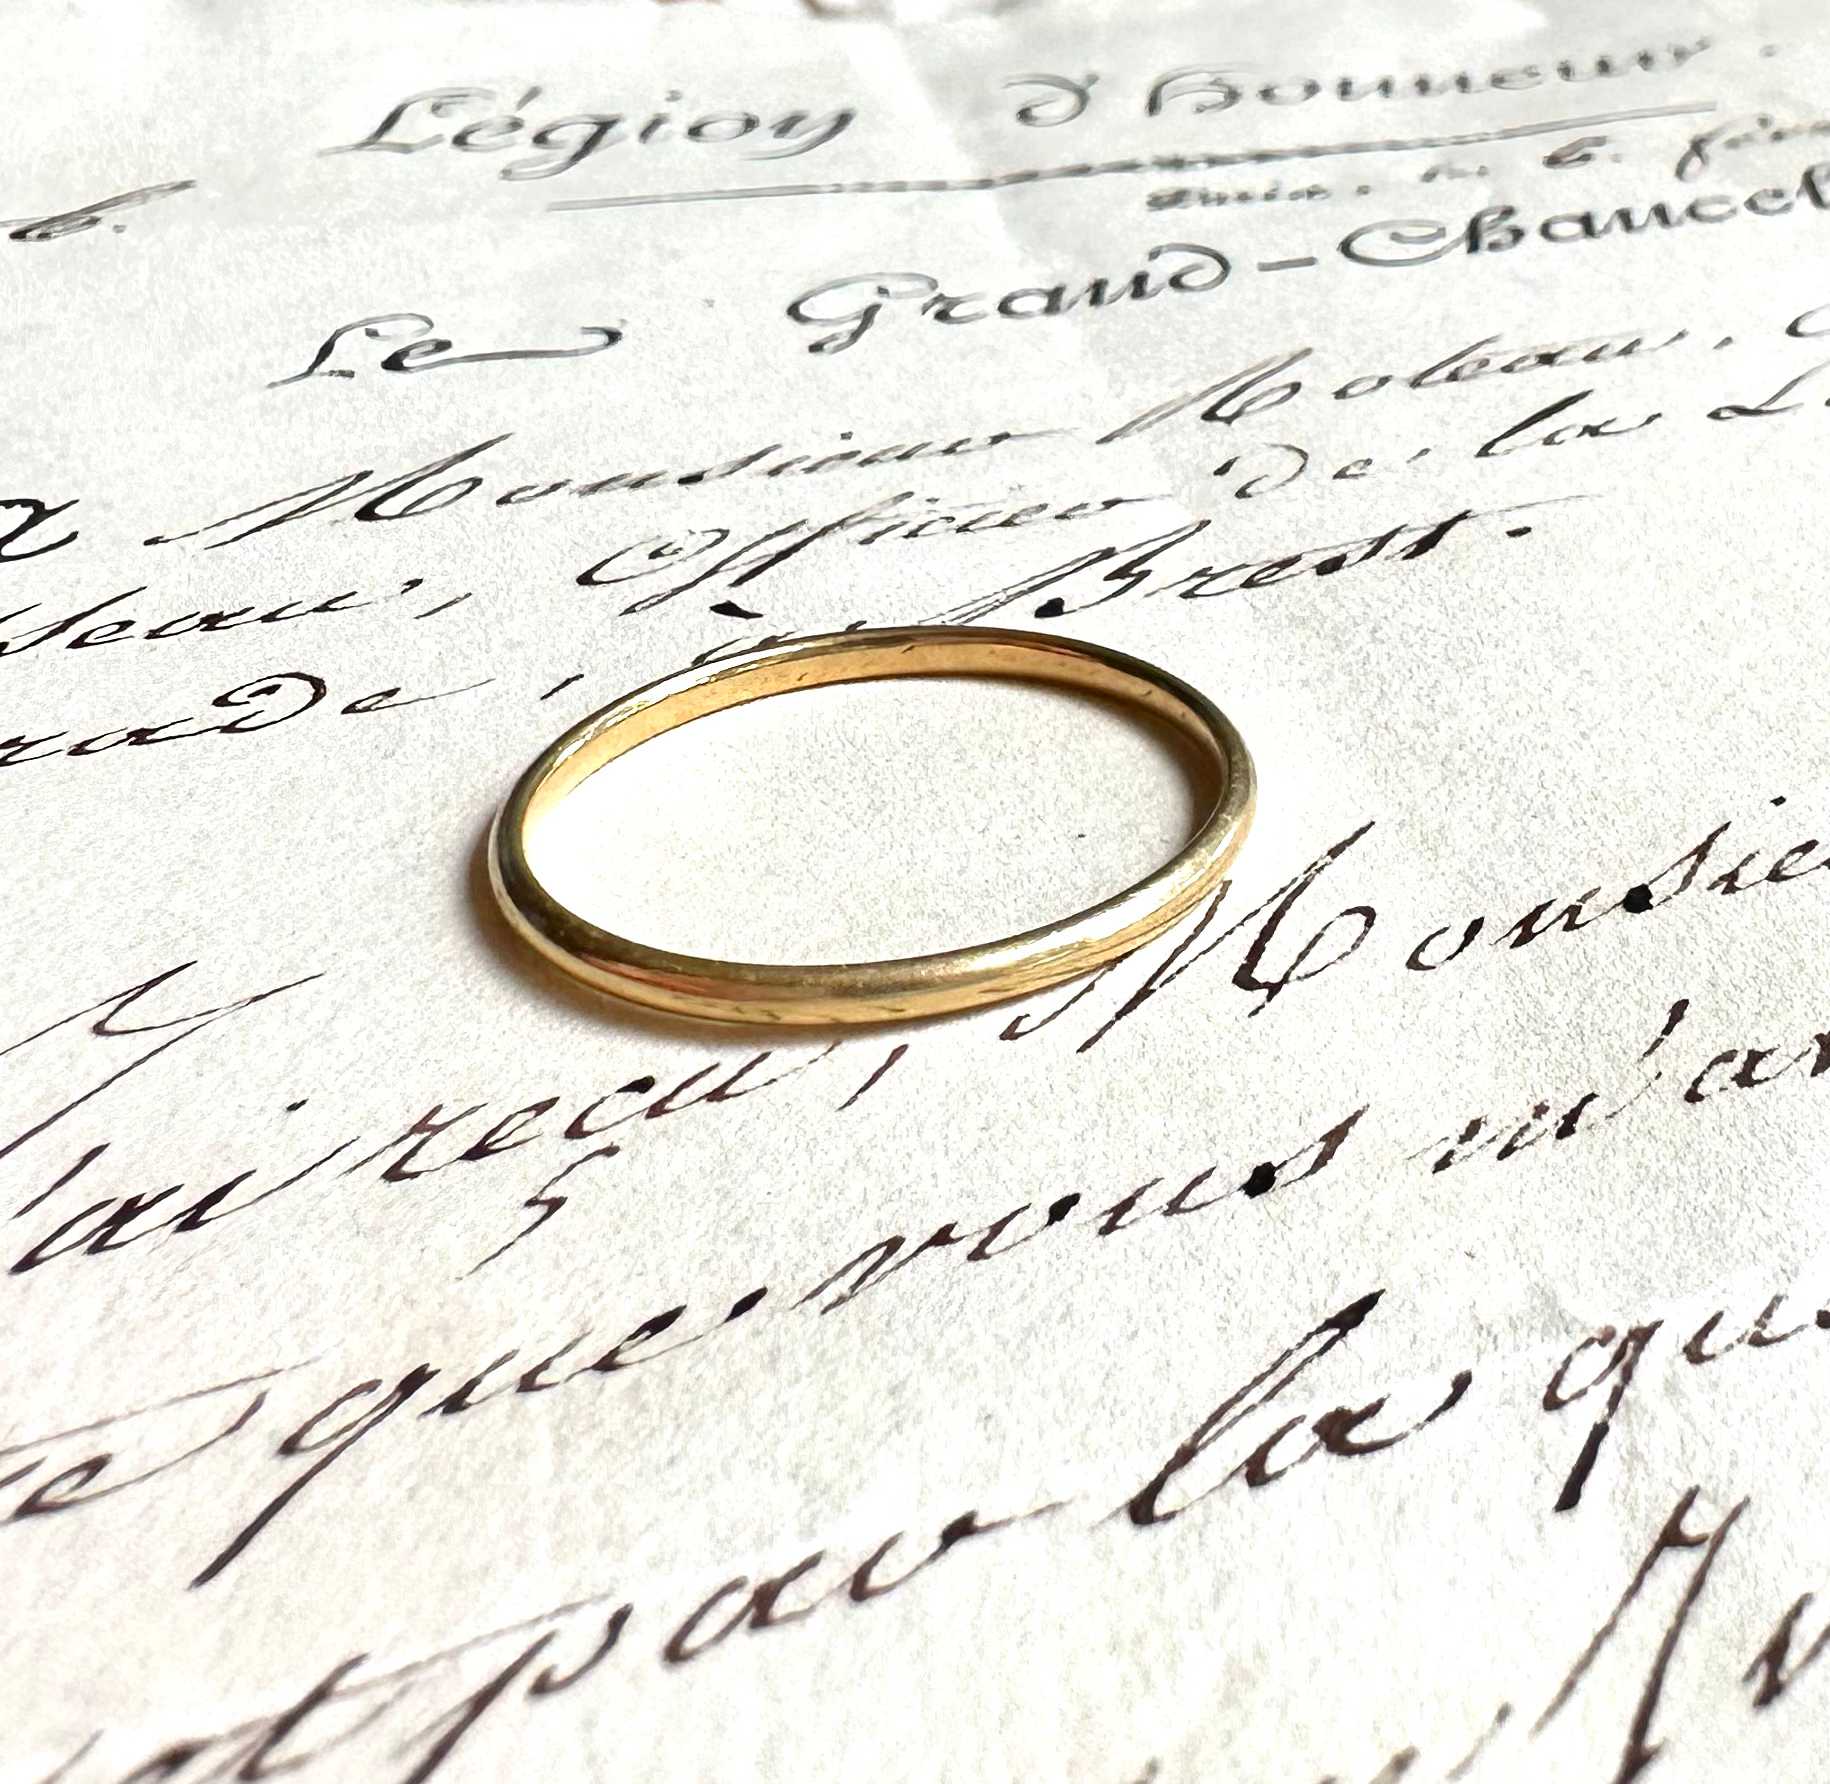 Légion d'Honneur.
Paris, le 6.
Le Grand-Chancel
A Monsieur Moteau,
seau, Officier de la L
rade, à Brest.
J'ai reçu, Monsie
que vous m'a
par la qu